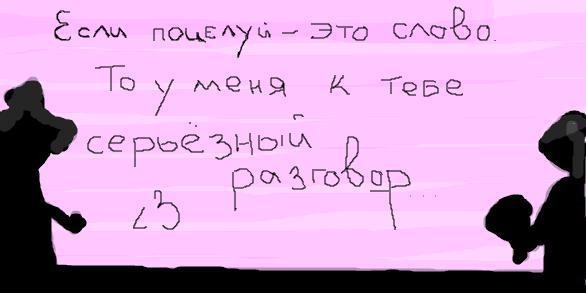 Если поцелуй - это слово.
То у меня к тебе
серьёзный
разговор...
<3